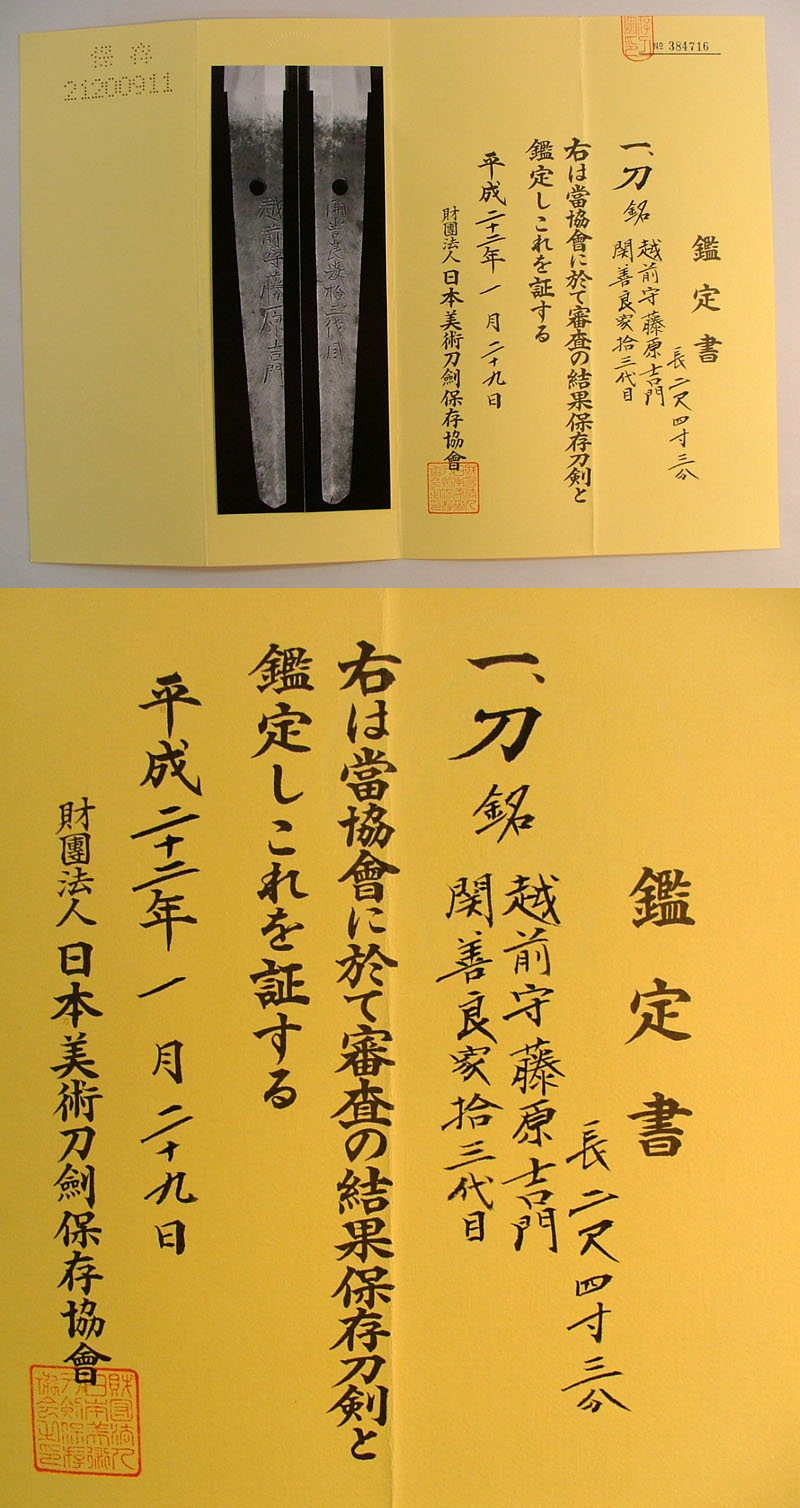 № 384716
鑑定書
長二尺四寸三分
一、刀 銘 越前守藤原吉門
関善良家拾三代目
右は當協會に於て審査の結果保存刀剣と
鑑定しこれを証する
平成二十二年一月二十九日
財團法人日本美術刀劍保存協會
関善良家拾三代目
越前守藤原吉門
保存
21200911
鑑定書
長二尺四寸三分
一、刀 銘 越前守藤原吉門
関善良家拾三代目
右は當協會に於て審査の結果保存刀剣と
鑑定しこれを証する
平成二十二年一月二十九日
財團法人日本美術刀劍保存協會